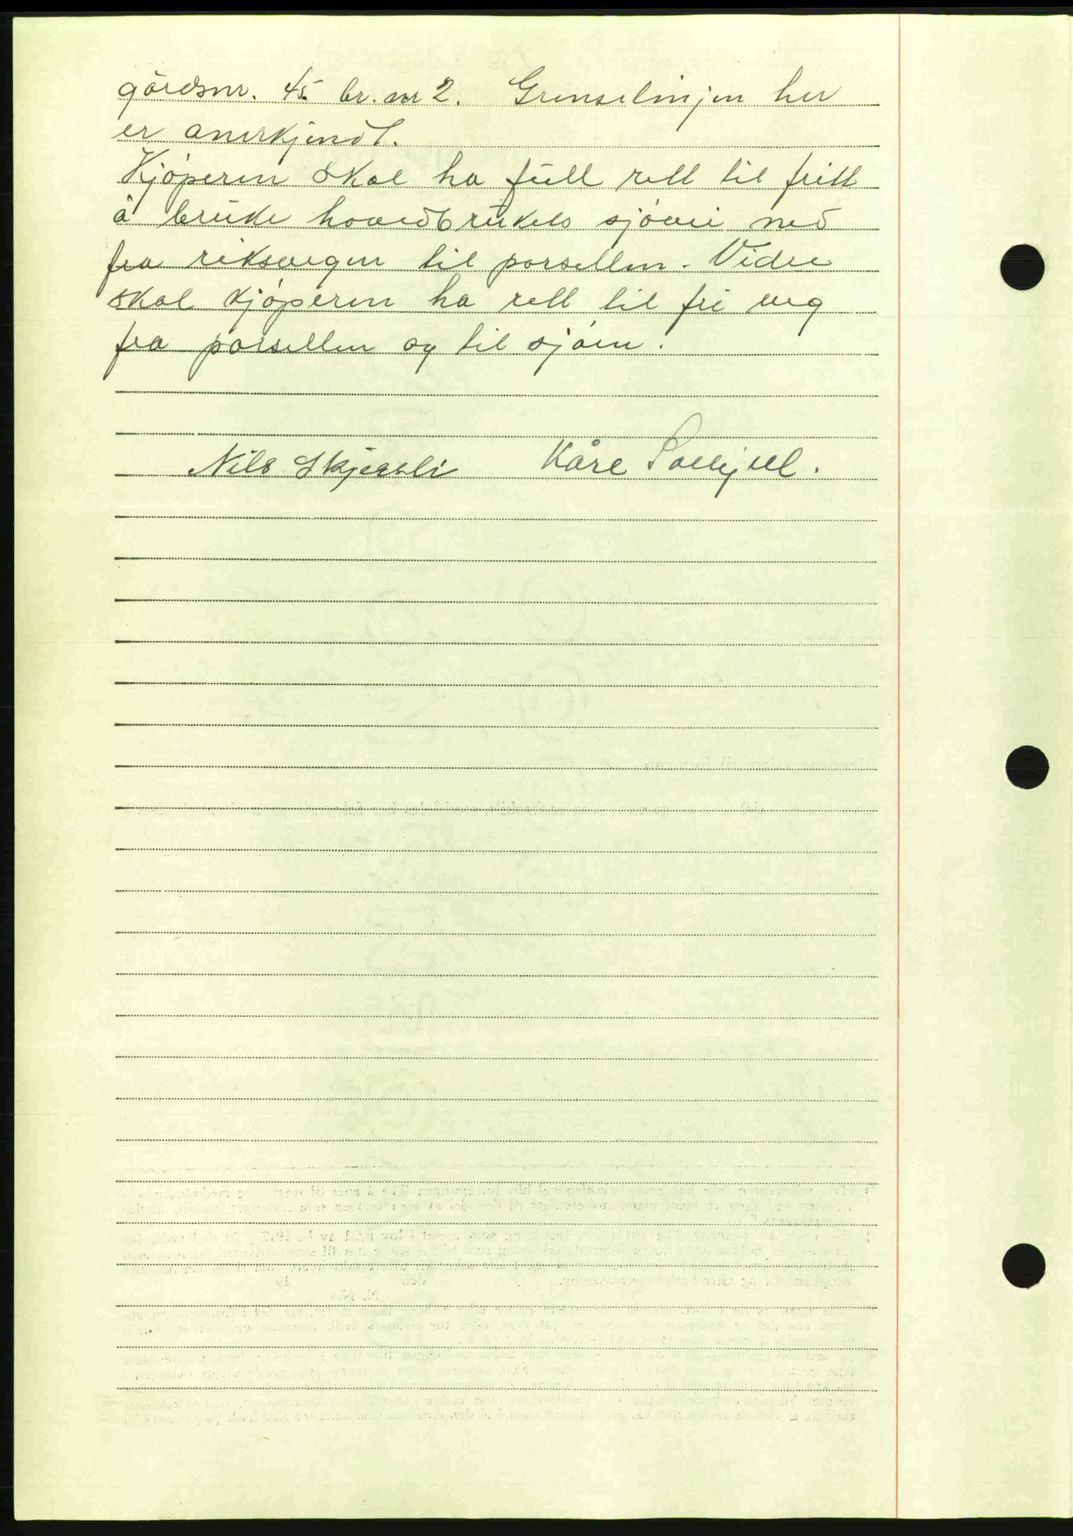 gårdsnr. 45 br. nr 2. Grenselinjen her
er anerkjendt.
Kjøperen skal ha full rett til fritt
å bruke hovedbrukets sjøvei ned
fra riksvegen til parsellen. Videre
skal kjøperen ha rett til fri veg
fra parsellen og til sjøen.
Nils Skjersli Kåre